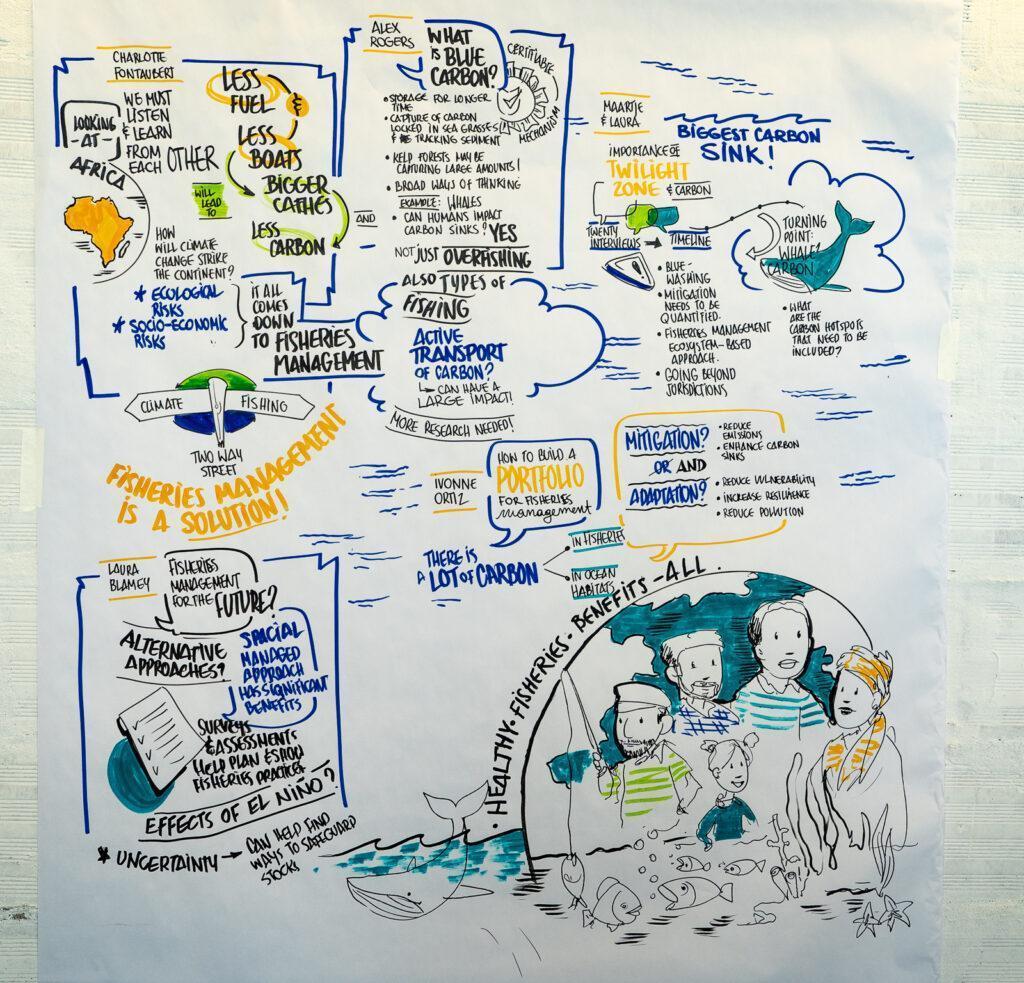 CHARLOTTE
FONTAUBERT
LOOKING
-AT-
AFRICA
WE MUST
LISTEN
& LEARN
FROM
EACH OTHER
LESS
FUEL
&
LESS
BOATS
WILL
LEAD
TO
BIGGER
CATHES
AND
LESS
CARBON
HOW
WILL CLIMATE
CHANGE STRIKE
THE CONTINENT?
* ECOLOGICAL
RISKS
* SOCIO-ECONOMIC
RISKS
IT ALL
COMES
DOWN
TO FISHERIES
MANAGEMENT
CLIMATE
FISHING
TWO WAY
STREET
FISHERIES MANAGEMENT
IS A SOLUTION!
ALEX
ROGERS
WHAT
IS BLUE
CARBON?
CERTIFIABLE
MECHANISM
• STORAGE FOR LONGER
TIME
• CAPTURE OF CARBON
LOCKED IN SEA GRASSES
& TRACKING SEDIMENT
• KELP FORESTS MAY BE
CAPTURING LARGE AMOUNTS!
• BROAD WAYS OF THINKING
EXAMPLE: WHALES
• CAN HUMANS IMPACT
CARBON SINKS? YES
NOT JUST OVERFISHING
ALSO TYPES OF
FISHING
ACTIVE
TRANSPORT
OF CARBON?
CAN HAVE A
LARGE IMPACT!
MORE RESEARCH NEEDED!
MAARTJE
& LAURA
BIGGEST CARBON
SINK!
IMPORTANCE OF
TWILIGHT
ZONE & CARBON
TWENTY
INTERVIEWS → TIMELINE
TURNING
POINT:
WHALE?
CARBON
• BLUE-
WASHING
• MITIGATION
NEEDS TO BE
QUANTIFIED.
• FISHERIES MANAGEMENT
ECOSYSTEM-BASED
APPROACH.
• GOING BEYOND
JURISDICTIONS
• WHAT
ARE THE
CARBON HOTSPOTS
THAT NEED TO BE
INCLUDED?
IVONNE
ORTIZ
HOW TO BUILD A
PORTFOLIO
FOR FISHERIES
management
MITIGATION?
OR AND
ADAPTATION?
• REDUCE
EMISSIONS
• ENHANCE CARBON
SINKS
• REDUCE VULNERABILITY
• INCREASE RESILIENCE
• REDUCE POLLUTION
THERE IS
A LOT OF CARBON
• IN FISHERIES
• IN OCEAN
HABITATS
LAURA
BLAMEY
FISHERIES
MANAGEMENT
FOR THE FUTURE?
ALTERNATIVE
APPROACHES?
SPACIAL
MANAGED
APPROACH
HAS SIGNIFICANT
BENEFITS
SURVEYS
& ASSESSMENTS
HELP PLAN
FISHERIES PRACTICES
EFFECTS OF EL NIÑO?
* UNCERTAINTY → CAN HELP FIND
WAYS TO SAFEGUARD
STOCKS
• HEALTHY • FISHERIES • BENEFITS - ALL.